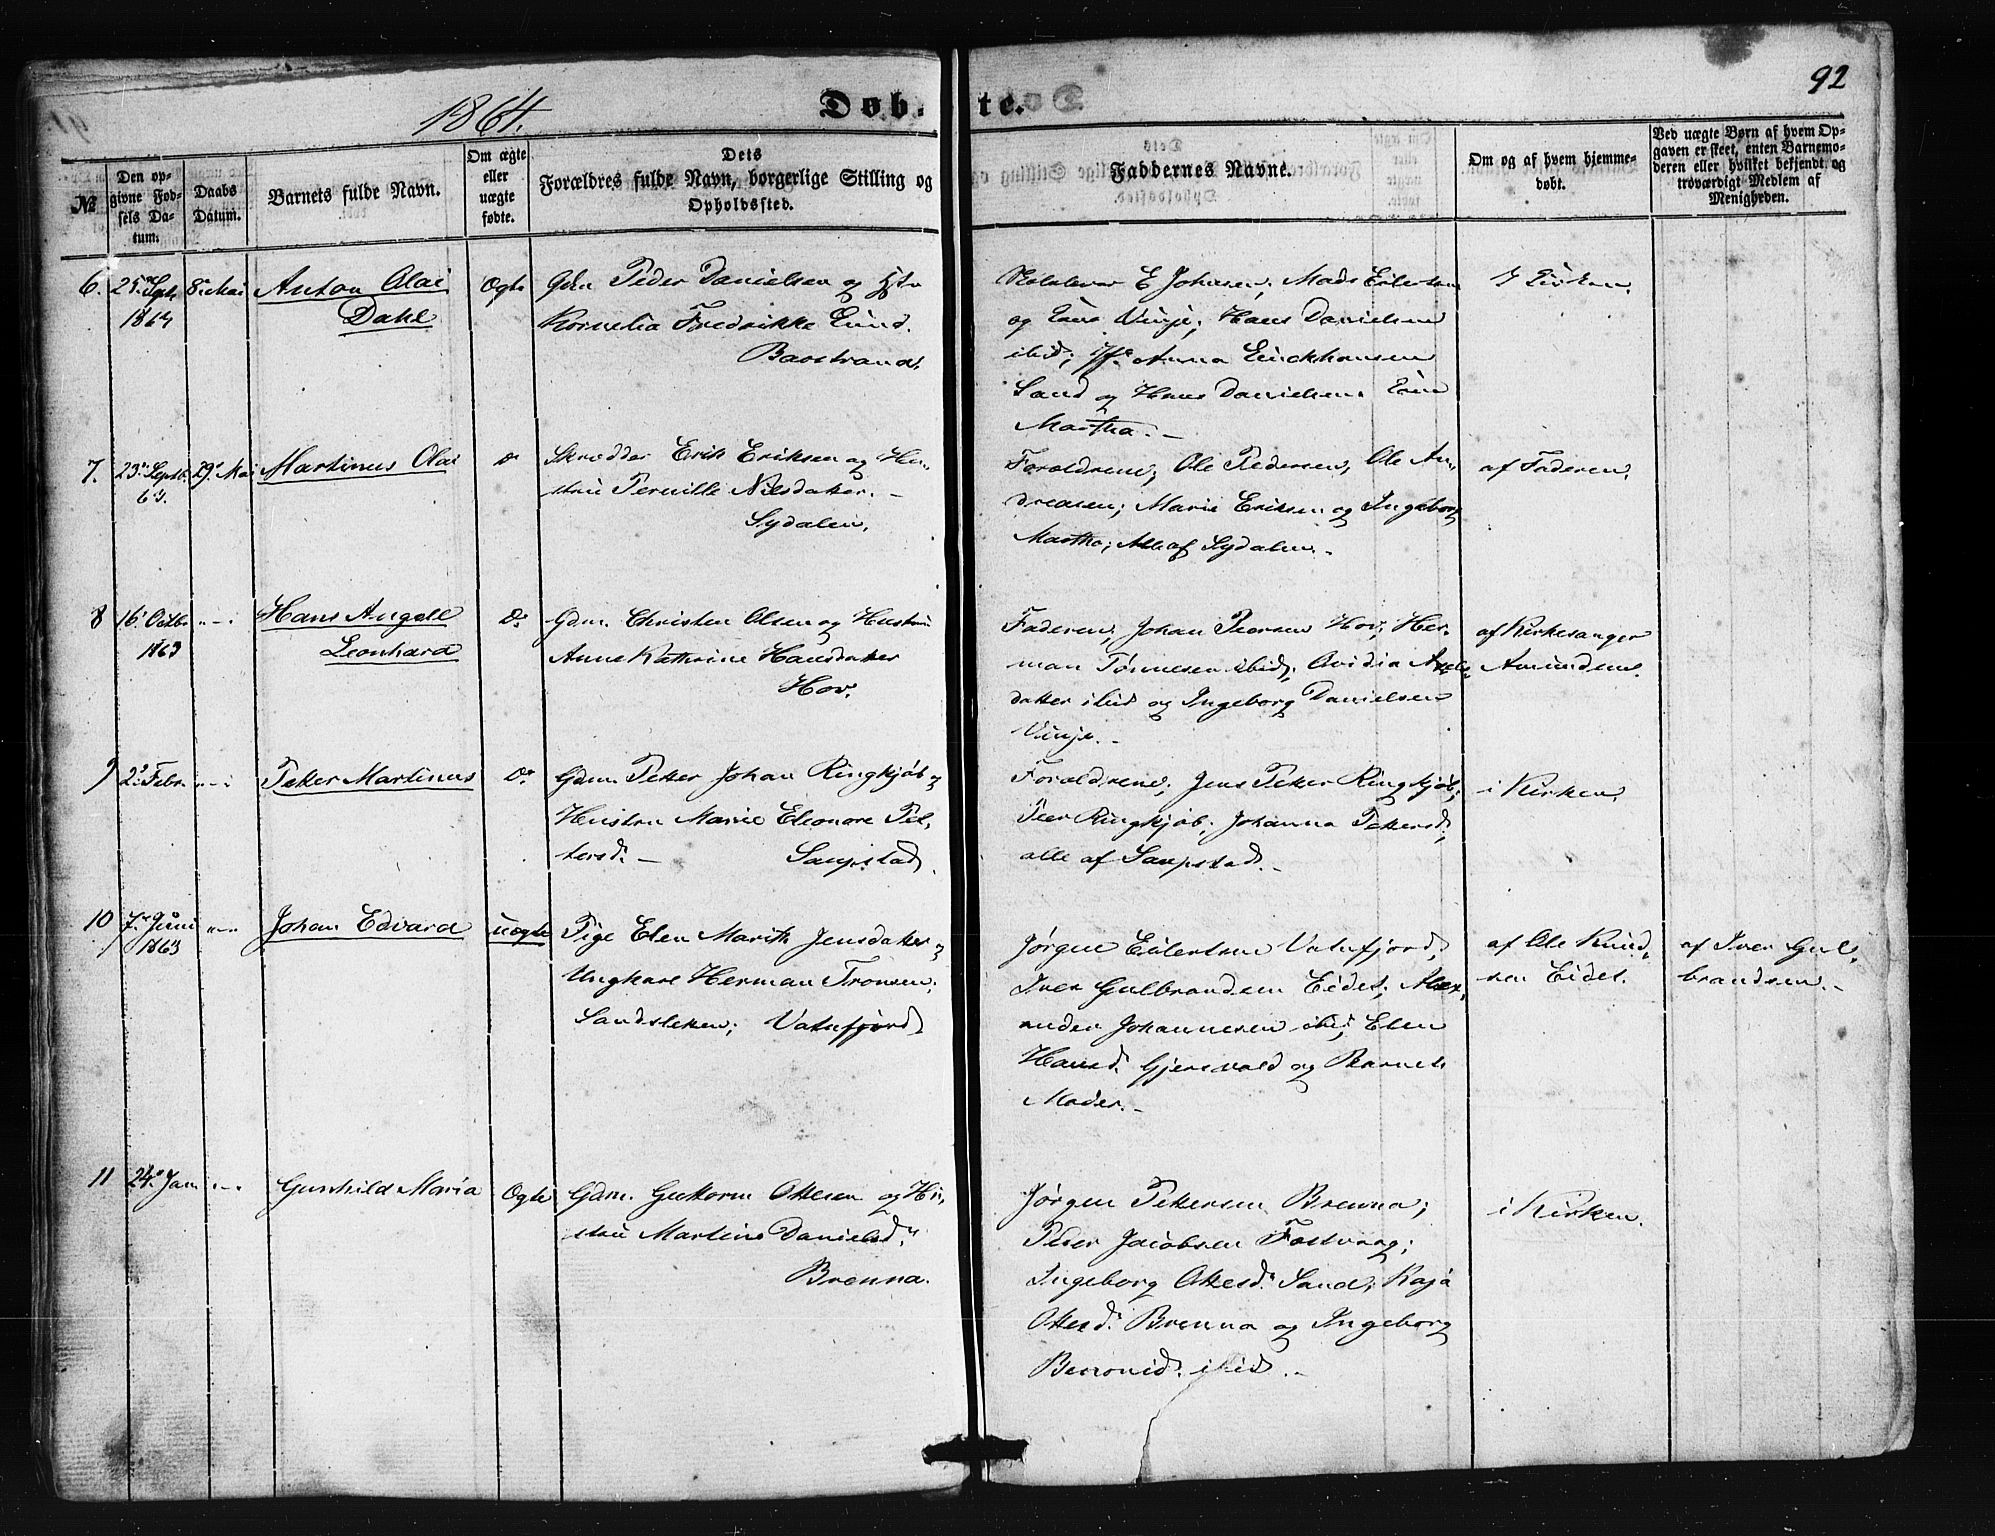 1864.
Døb-
te.
92
№
Den op-
givne Fød-
sels Da-
tum.
Daabs
Datum.
Barnets fulde Navn.
Om ægte
eller
uægte
fødte.
Dets
Forældres fulde Navn, borgerlige Stilling og
Opholdssted.
Faddernes Navne.
Om og af hvem hjemme-
døbt.
Ved uægte Børn af hvem Op-
gaven er skeet, enten Barnemo-
deren eller hvilket bekjendt og
troværdigt Medlem af
Menigheden.
6.
25. Sept.
1864
8. Mai
Anton Olai
Dahl
Ægte
Gdm Peder Danielsen og
Kornelia Fredrikke Lund.
Baastrand.
E Johnsen, Mads Eilertsen
og Vinje, Hans Danielsen
ibid; Jfr. Anna Erickhansen
Sand og Hans Danielsen
Martha.-
I Kirken.
7.
23. Septb.
63.
29. Mai
Martinus Olai
Do
Skrædder Erik Eriksen og Hu-
stru Pernille Nilsdatter.-
Sydalen.
Forældrene, Ole Pedersen, Ole An-
dreasen; Marie Eriksen og Ingeborg
Martha; Alle af Sydalen.-
af Faderen.
8
16. Octbr
1863
"-"
Hans Angell
Leonhard
Do
Gdm. Christen Olsen og Hustru
Anne Kathrine Hansdatter
Hov.
Faderen, Johan Peersen Hov; Her-
man Tønnesen ibid; Ovidia Axels-
datter ibid og Ingeborg Danielsen
Vinje.-
af Kirkesanger
Amundsen.
9
2. Febr.
"-"
Petter Martinus
Do
Gdm. Petter Johan Ringkjøb og
Hustru Marie Eleonore Pet-
tersd.- Laupstad
Forældrene, Jens Petter Ringkjøb;
Peer Ringkjøb, Johanna Pettersd,
alle af Laupstad.-
i Kirken.
10
7. Juni
1863
"-"
Johan Edvard
uægte
Pige Elen Marith Jensdatter og
Ungkarl Herman Tronsen,
Sandsletten; Vatnfjord
Jørgen Eilertsen Vatnfjord,
Iver Gulbrandsen Eidet; Alex-
ander Johannesen ibid; Elen
Hansd. Gjersvold og Barnets
Moder.-
af Ole Knud-
sen Eidet.
af Iver Gul-
brandsen.-
11
24. Jan
"-"
Gunhild Maria
Ægte
Gdm. Guttorm Ottesen og Hu-
stru Martine Danielsd.
Brenna.
Jørgen Pettersen Brenna;
Peder Jacobsen Festvaag;
Ingeborg Ottesd. Sand; Kaja
Ottesd. Brenna og Ingeborg
Beronid. ibid.-
i Kirken.